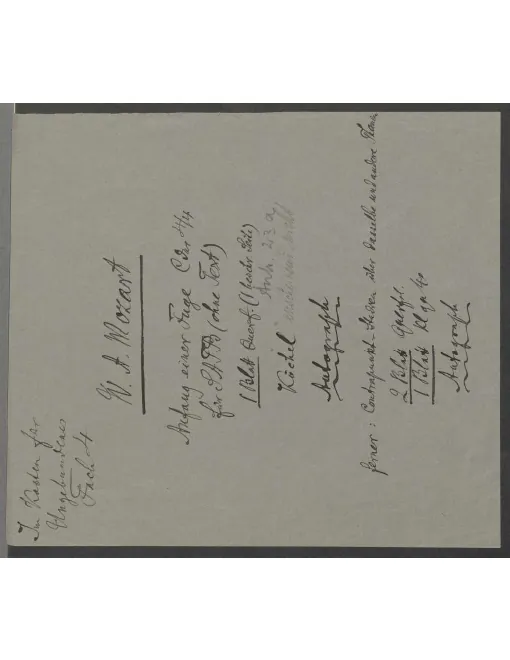 Im Kasten für
Ungebundenes
Fach 4
W. A. Mozart
Anfang einer Fuge Cdur 4/4
für SATB (ohne Text)
1 Blatt Querf. (1 beschr. Seite)
Köchel Anh. 23a
Autograph
ferner: Contrapunkt-Studien über dasselbe und andere Thema,
2 Blatt Querfol.
1 Blatt kl. qu. 4o
Autograph